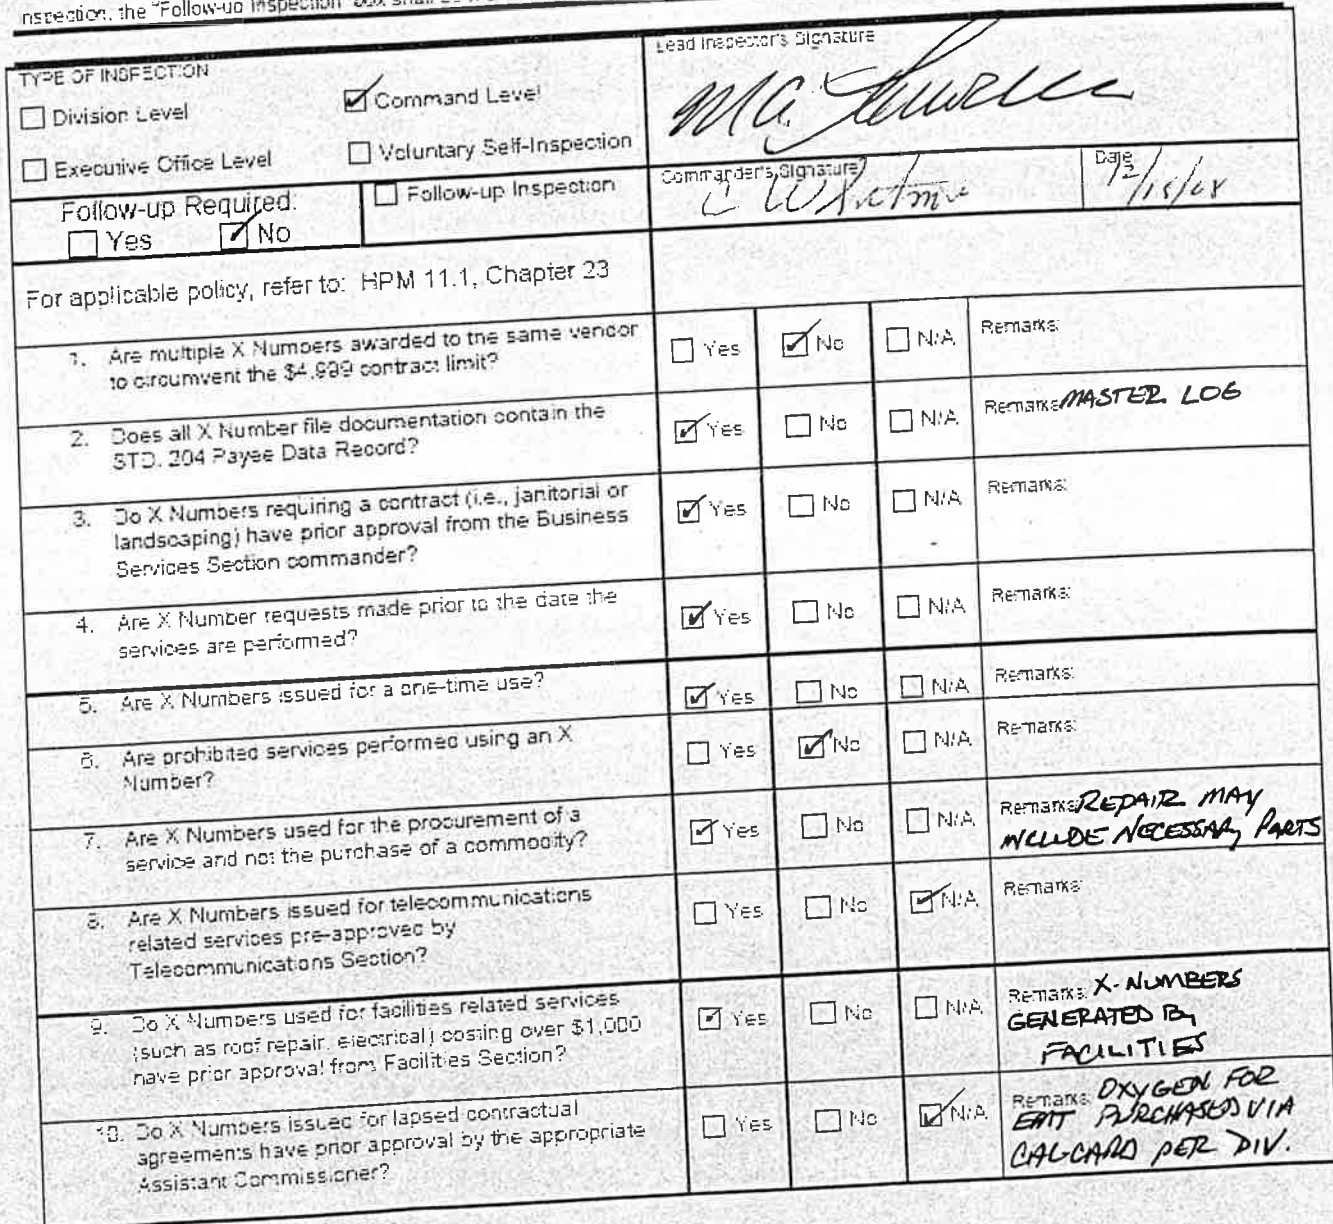 nspection, the "Follow-up Inspection" box shall be
TYPE OF INSPECTION
Division Level
Command Level
Executive Office Level
Voluntary Self-Inspection
Follow-up Required:
Yes
No
Follow-up Inspection
Lead Inspector's Signature
Commander's Signature
Date
12/15/08
For applicable policy, refer to: HPM 11.1, Chapter 23
1. Are multiple X Numbers awarded to the same vendor
to circumvent the $4,999 contract limit?
Yes No N/A Remarks:
2. Does all X Number file documentation contain the
STD. 204 Payee Data Record?
Yes No N/A Remarks: MASTER LOG
3. Do X Numbers requiring a contract (i.e., janitorial or
landscaping) have prior approval from the Business
Services Section commander?
Yes No N/A Remarks:
4. Are X Number requests made prior to the date the
services are performed?
Yes No N/A Remarks:
5. Are X Numbers issued for a one-time use?
Yes No N/A Remarks:
6. Are prohibited services performed using an X
Number?
Yes No N/A Remarks:
7. Are X Numbers used for the procurement of a
service and not the purchase of a commodity?
Yes No N/A Remarks: REPAIR MAY
INCLUDE NECESSARY PARTS
8. Are X Numbers issued for telecommunications
related services pre-approved by
Telecommunications Section?
Yes No N/A Remarks:
9. Do X Numbers used for facilities related services
(such as roof repair, electrical) costing over $1,000
have prior approval from Facilities Section?
Yes No N/A Remarks: X-NUMBERS
GENERATED By
FACILITIES
10. Do X Numbers issued for lapsed contractual
agreements have prior approval by the appropriate
Assistant Commissioner?
Yes No N/A Remarks: OXYGEN FOR
EMT PURCHASED VIA
CAL-CARD PER DIV.